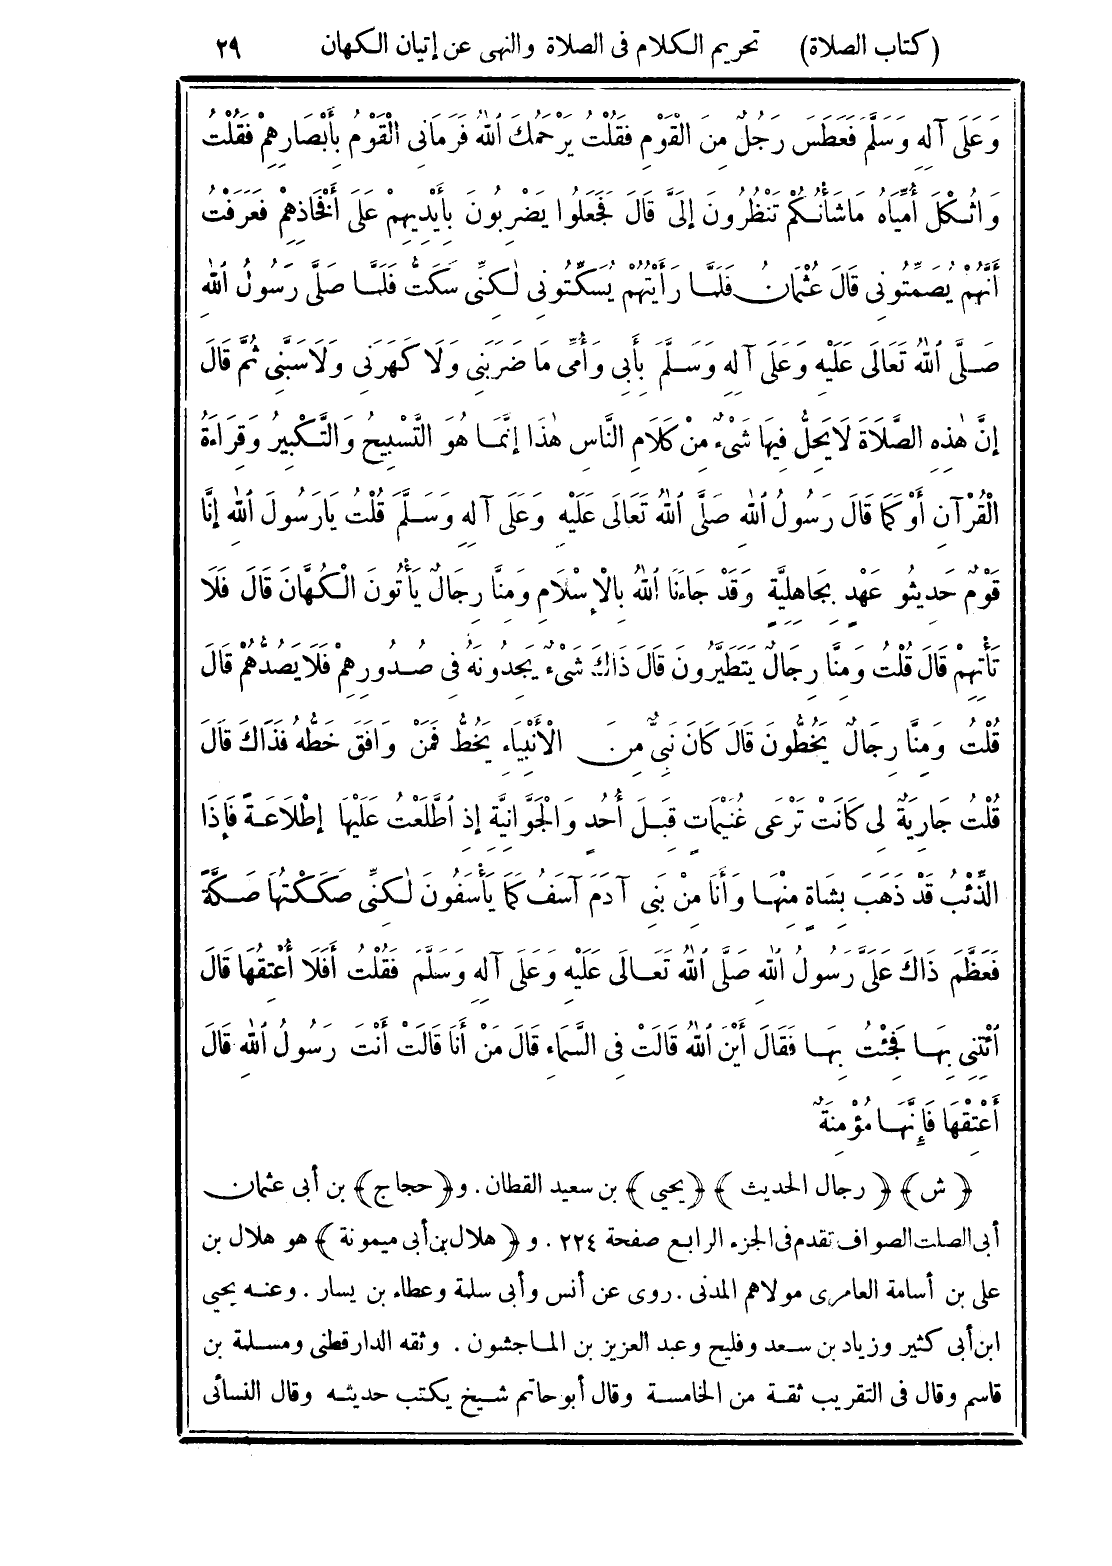 (كتاب الصلاة) تحريم الكلام فى الصلاة والنهى عن إتيان الكهان ٢٩
وَعَلَى آلِهِ وَسَلَّمَ فَعَطَسَ رَجُلٌ مِنَ الْقَوْمِ فَقُلْتُ يَرْحَمُكَ اللهُ فَرَمَانِى الْقَوْمُ بِأَبْصَارِهِمْ فَقُلْتُ
وَاثُكْلَ أُمِّيَاهُ مَاشَأْنُكُمْ تَنْظُرُونَ إِلَىَّ قَالَ فَجَعَلُوا يَضْرِبُونَ بِأَيْدِيهِمْ عَلَى أَفْخَاذِهِمْ فَعَرَفْتُ
أَنَّهُمْ يُصَمِّتُونِى قَالَ عُثْمَانُ فَلَمَّا رَأَيْتُهُمْ يُسَكِّتُونِى لٰكِنِّى سَكَتُّ فَلَمَّا صَلَّى رَسُولُ اللهِ
صَلَّى اللهُ تَعَالَى عَلَيْهِ وَعَلَى آلِهِ وَسَلَّمَ بِأَبِى وَأُمِّى مَا ضَرَبَنِى وَلَا كَهَرَنِى وَلَاسَبَّنِى ثُمَّ قَالَ
إِنَّ هٰذِهِ الصَّلَاةَ لَايَحِلُّ فِيهَا شَىْءٌ مِنْ كَلَامِ النَّاسِ هٰذَا إِنَّمَا هُوَ التَّسْبِيحُ وَالتَّكْبِيرُ وَقِرَاءَةُ
الْقُرْآنِ أَوْ كَمَا قَالَ رَسُولُ اللهِ صَلَّى اللهُ تَعَالَى عَلَيْهِ وَعَلَى آلِهِ وَسَلَّمَ قُلْتُ يَارَسُولَ اللهِ إِنَّا
قَوْمٌ حَدِيثُو عَهْدٍ بِجَاهِلِيَّةٍ وَقَدْ جَاءَنَا اللهُ بِالْإِسْلَامِ وَمِنَّا رِجَالٌ يَأْتُونَ الْكُهَّانَ قَالَ فَلَا
تَأْتِهِمْ قَالَ قُلْتُ وَمِنَّا رِجَالٌ يَتَطَيَّرُونَ قَالَ ذَاكَ شَىْءٌ يَجِدُونَهُ فِى صُدُورِهِمْ فَلَا يَصُدُّهُمْ قَالَ
قُلْتُ وَمِنَّا رِجَالٌ يَخُطُّونَ قَالَ كَانَ نَبِىٌّ مِنَ الْأَنْبِيَاءِ يَخُطُّ فَمَنْ وَافَقَ خَطُّهُ فَذَاكَ قَالَ
قُلْتُ جَارِيَةٌ لِى كَانَتْ تَرْعَى غُنَيْمَاتٍ قِبَلَ أُحُدٍ وَالْجَوَّانِيَّةِ إِذِ اطَّلَعْتُ عَلَيْهَا إِطْلَاعَةً فَإِذَا
الذِّئْبُ قَدْ ذَهَبَ بِشَاةٍ مِنْهَا وَأَنَا مِنْ بَنِى آدَمَ آسَفُ كَمَا يَأْسَفُونَ لٰكِنِّى صَكَكْتُهَا صَكَّةً
فَعَظَّمَ ذَاكَ عَلَىَّ رَسُولُ اللهِ صَلَّى اللهُ تَعَالَى عَلَيْهِ وَعَلَى آلِهِ وَسَلَّمَ فَقُلْتُ أَفَلَا أُعْتِقُهَا قَالَ
ائْتِنِى بِهَا فَجِئْتُ بِهَا فَقَالَ أَيْنَ اللهُ قَالَتْ فِى السَّمَاءِ قَالَ مَنْ أَنَا قَالَتْ أَنْتَ رَسُولُ اللهِ قَالَ
أَعْتِقْهَا فَإِنَّهَا مُؤْمِنَةٌ
﴿ش﴾ ﴿رجال الحديث﴾ ﴿يحيى﴾ بن سعيد القطان. و﴿حجاج﴾ بن أبى عثمان
أبى الصلت الصواف تقدم فى الجزء الرابع صفحة ٢٢٤. و﴿هلال بن أبى ميمونة﴾ هو هلال بن
على بن أسامة العامرى مولاهم المدنى. روى عن أنس وأبى سلمة وعطاء بن يسار. وعنه يحيى
ابن أبى كثير وزياد بن سعد وفليح وعبد العزيز بن الماجشون. وثقه الدارقطنى ومسلمة بن
قاسم وقال فى التقريب ثقة من الخامسة وقال أبو حاتم شيخ يكتب حديثه وقال النسائى